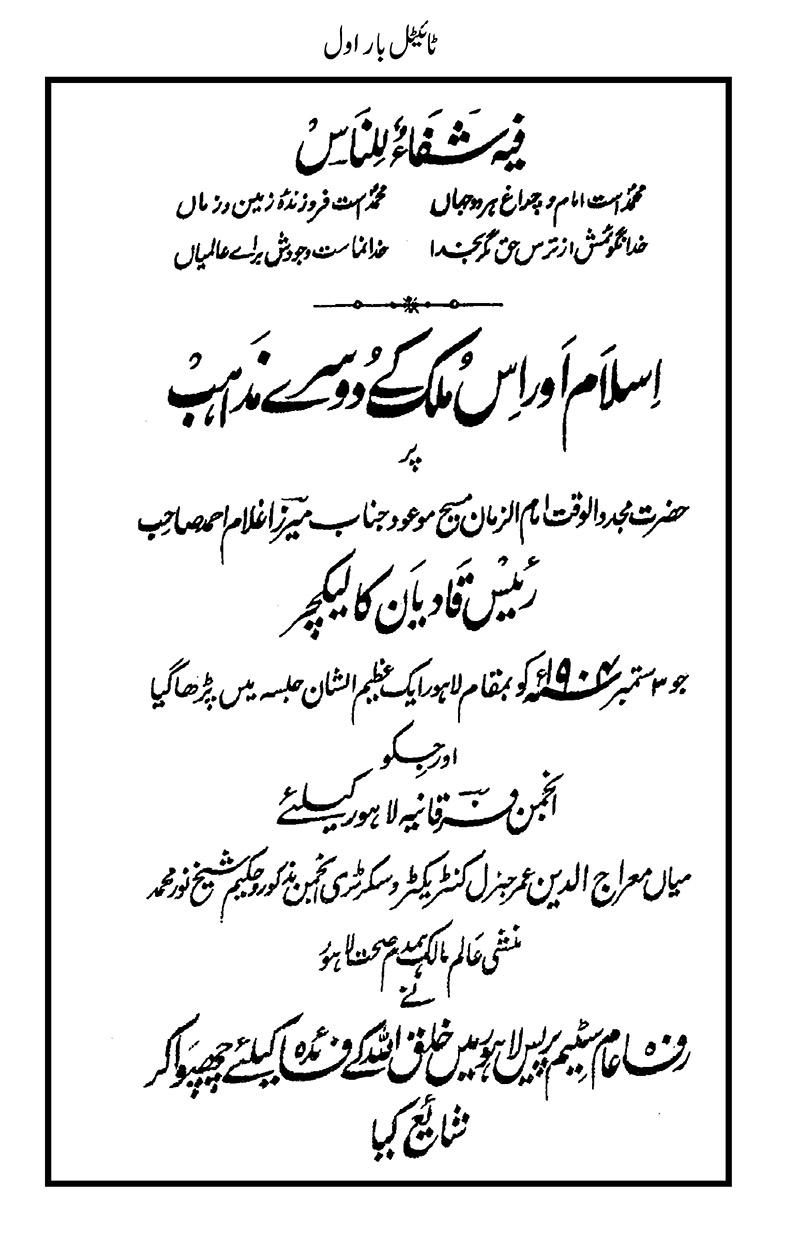 ٹائیٹل بار اول
فِیہِ شَفَاءٌ لِلنَاسِ
محمدؐ است امام و چراغ ہر دو جہاں محمدؐ است فروزندۂ زمین و زماں
خدا نگوئمش از ترس حق مگر بخدا خدا نماست وجودش برائے عالمیاں
اِسلام اَور اِس مُلک کے دُوسرے مذَاہب
پر
حضرت مجدد الوقت امام الزمان مسیح موعود جناب میرزا غلام احمد صاحب
رئیس قادیان کا لیکچر
جو ۳ ستمبر ۱۹۰۴ء کو بمقام لاہور ایک عظیم الشان جلسہ میں پڑھا گیا
اور جسکو
انجمن فرقانیہ لاہور کیلئے
میاں معراج الدین عمر جنرل کنٹریکٹر و سکرٹری انجمن مذکور و حکیم شیخ نور محمد
منشی عالم مالک ہمدم صحت لاہور
نے
رفاہ عام سٹیم پریس لاہور میں خلق اللہ کے فائدہ کیلئے چھپوا کر
شایع کیا